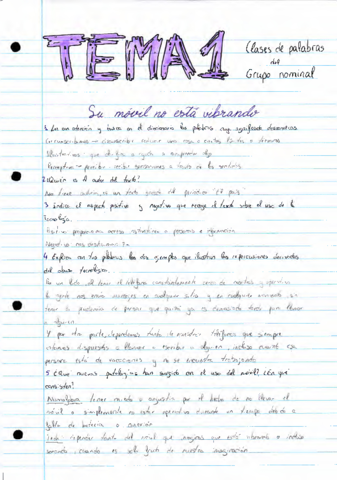 TEMA 1
Clases de palabras
del
Grupo nominal
Su móvil no está vibrando
1. Lee con atención y busca en el diccionario las palabras cuyo significado desconozcas
Circunscribirnos → circunscribir: reducir una cosa a ciertos límites o términos
que o ayuda a comprender algo
Perceptivo → percibir: recibir sensaciones a través de los sentidos
2. ¿Quién es el autor del texto?
No tiene autor, es un texto del periódico "El país"
3. Indica el aspecto positivo y negativo que recoge el texto sobre el uso de la
tecnología.
Positivo: proporciona nuevas
Negativo: nos
4. Explica con tus palabras los dos ejemplos que ilustran las repercusiones derivadas
del abuso tecnológico.
Por un lado, el tener el teléfono constantemente cerca de nosotros y
la gente nos envía mensajes en cualquier sitio y en cualquier momento, sin
tener la presencia de personas que
a alguien.
Y por otra parte, dependemos tanto de nuestros teléfonos que siempre
estamos dispuestos a llamar o escribir a alguien, incluso cuando esa
persona está de vacaciones y no se encuentra trabajando
5. ¿Qué nuevas patologías han surgido con el uso del móvil? ¿En qué
consisten?
Nomofobia: tener miedo o angustia por el hecho de no llevar el
móvil o simplemente no estar operativo durante un tiempo debido a
falta de batería o
depender tanto del móvil que imaginas que está vibrando o incluso
sonando cuando es solo fruto de nuestra imaginación.